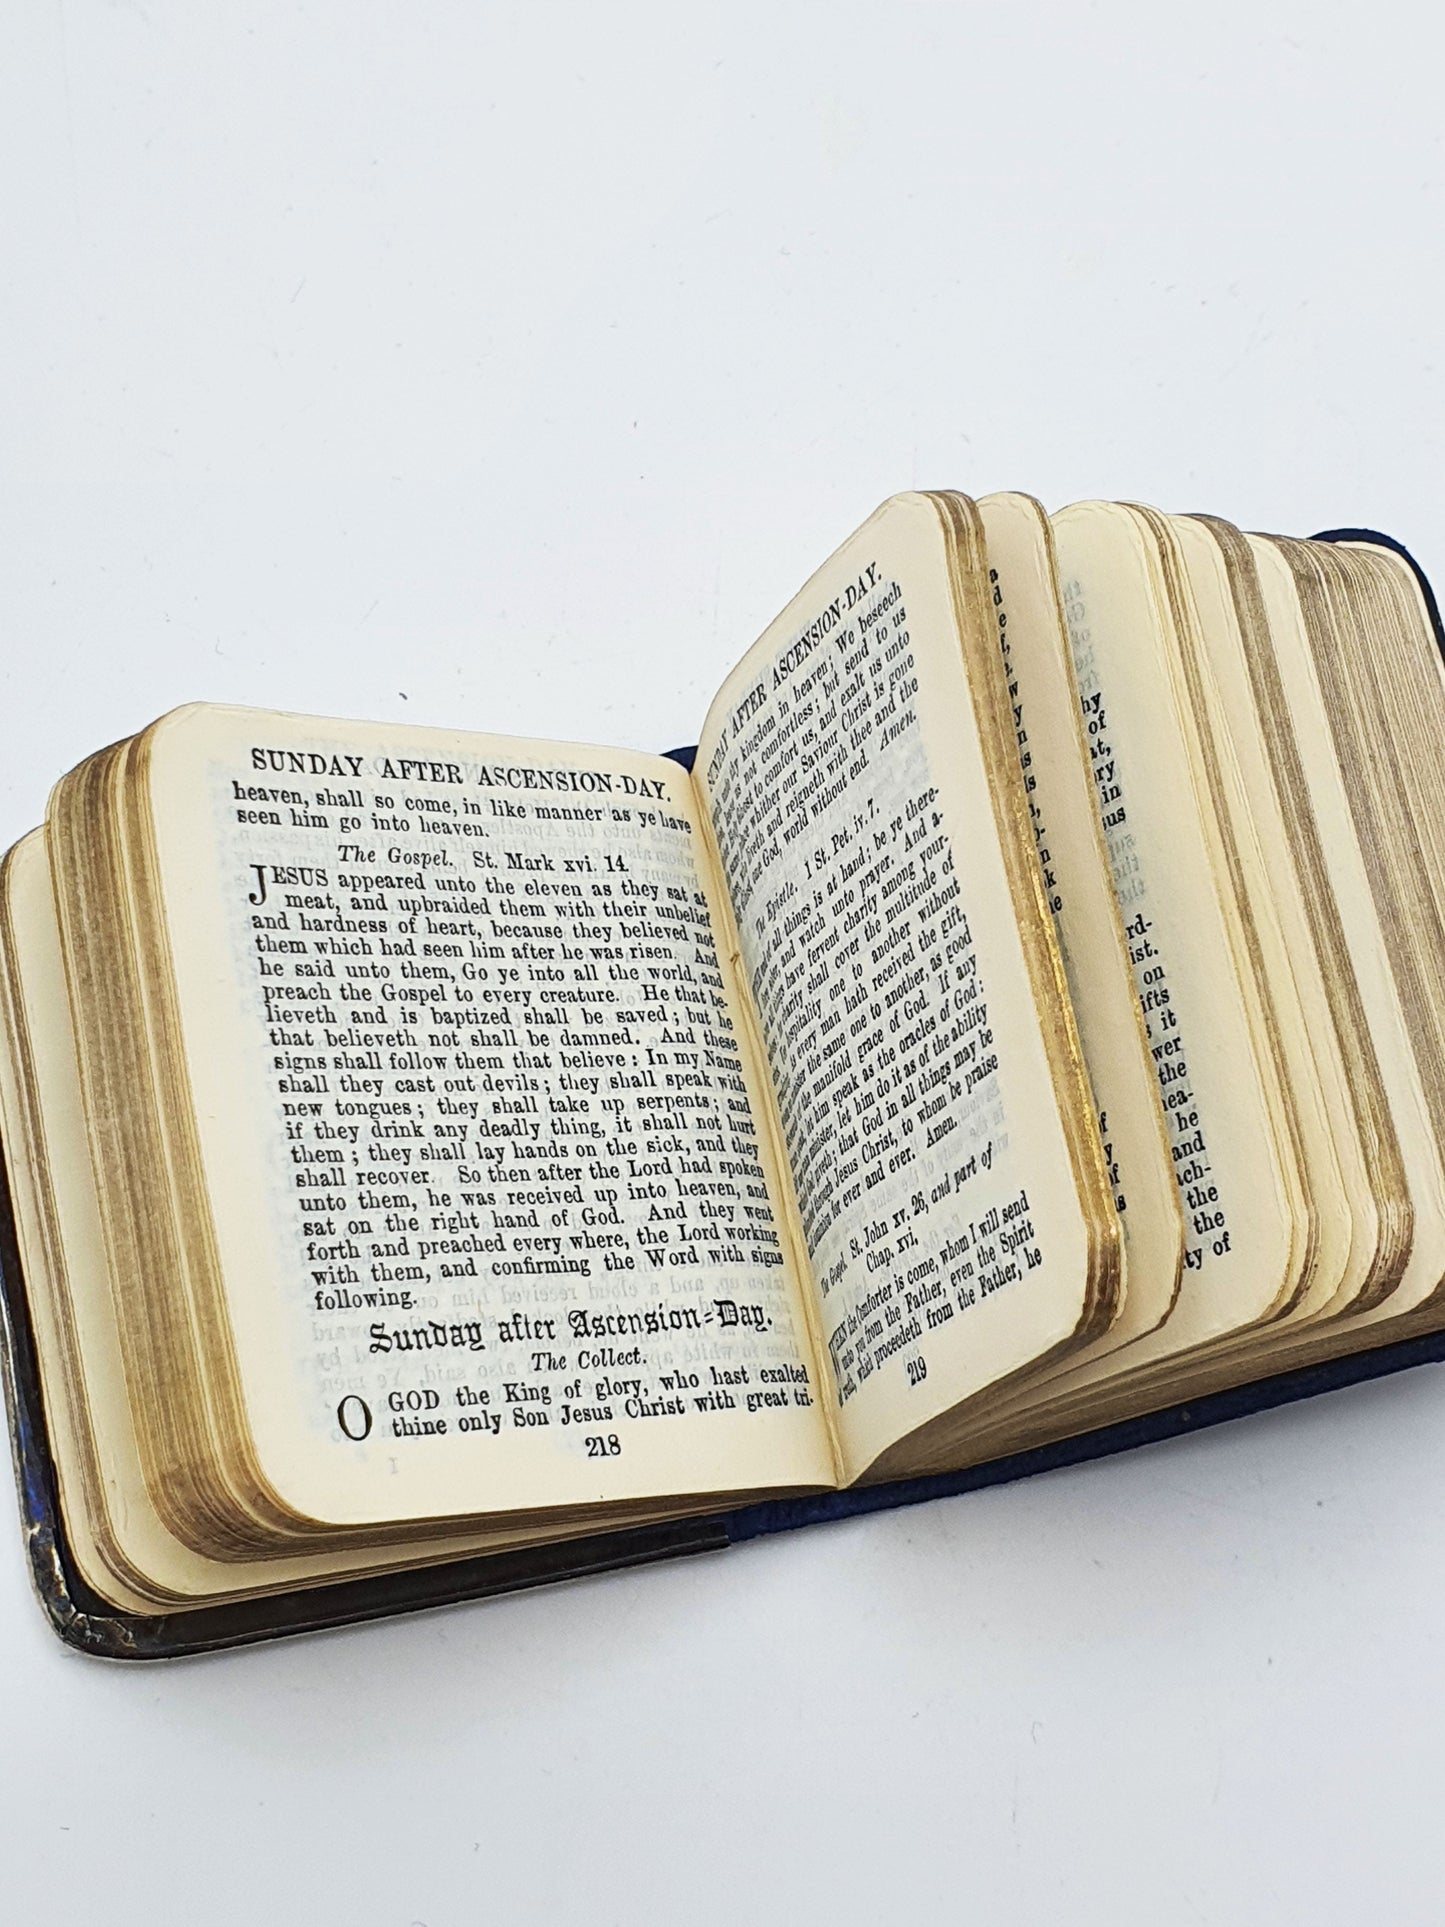 SUNDAY AFTER ASCENSION-DAY.
heaven, shall so come, in like manner as ye have
seen him go into heaven.
The Gospel. St. Mark xvi. 14.
JESUS appeared unto the eleven as they sat at
meat, and upbraided them with their unbelief
and hardness of heart, because they believed not
them which had seen him after he was risen. And
he said unto them, Go ye into all the world, and
preach the Gospel to every creature. He that be-
lieveth and is baptized shall be saved; but he
that believeth not shall be damned. And these
signs shall follow them that believe: In my Name
shall they cast out devils; they shall speak with
new tongues; they shall take up serpents; and
if they drink any deadly thing, it shall not hurt
them; they shall lay hands on the sick, and they
shall recover. So then after the Lord had spoken
unto them, he was received up into heaven, and
sat on the right hand of God. And they went
forth and preached every where, the Lord working
with them, and confirming the Word with signs
following.
Sunday after Ascension-Day.
The Collect.
O GOD the King of glory, who hast exalted
thine only Son Jesus Christ with great tri-
218
SUNDAY AFTER ASCENSION-DAY.
kingdom in heaven; We beseech
us not comfortless; but send to us
Ghost to comfort us, and exalt us unto
place whither our Saviour Christ is gone
liveth and reigneth with thee and the
one God, world without end. Amen.
The Epistle. 1 St. Pet. iv. 7.
end of all things is at hand; be ye there-
sober, and watch unto prayer. And a-
things have fervent charity among your-
charity shall cover the multitude of
hospitality one to another without
every man hath received the gift,
minister the same one to another, as good
of the manifold grace of God. If any
let him speak as the oracles of God;
minister, let him do it as of the ability
God giveth; that God in all things may be
through Jesus Christ, to whom be praise
dominion for ever and ever. Amen.
The Gospel. St. John xv. 26, and part of
Chap. xvi.
WHEN the Comforter is come, whom I will send
unto you from the Father, even the Spirit
of truth, which proceedeth from the Father, he
219
of
in
rd-
ist.
on
it
the
he
and
the
the
of